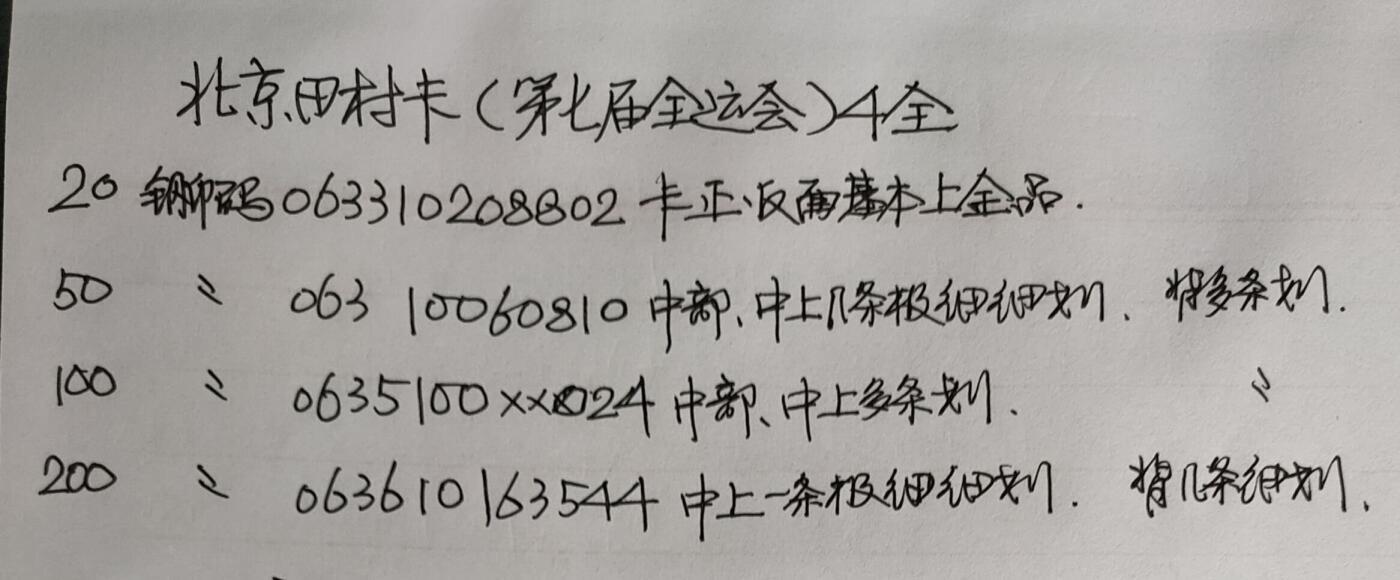 北京田村卡(第七届全运会)4全
20 钢印码063310208802 卡正、反面基本上全品.
50 〃 063 10060810 中部、中上几条极细细划. 背多条划.
100 〃 0635100××024 中部、中上多条划. 〃
200 〃 063610163544 中上一条极细细划. 背几条细划.